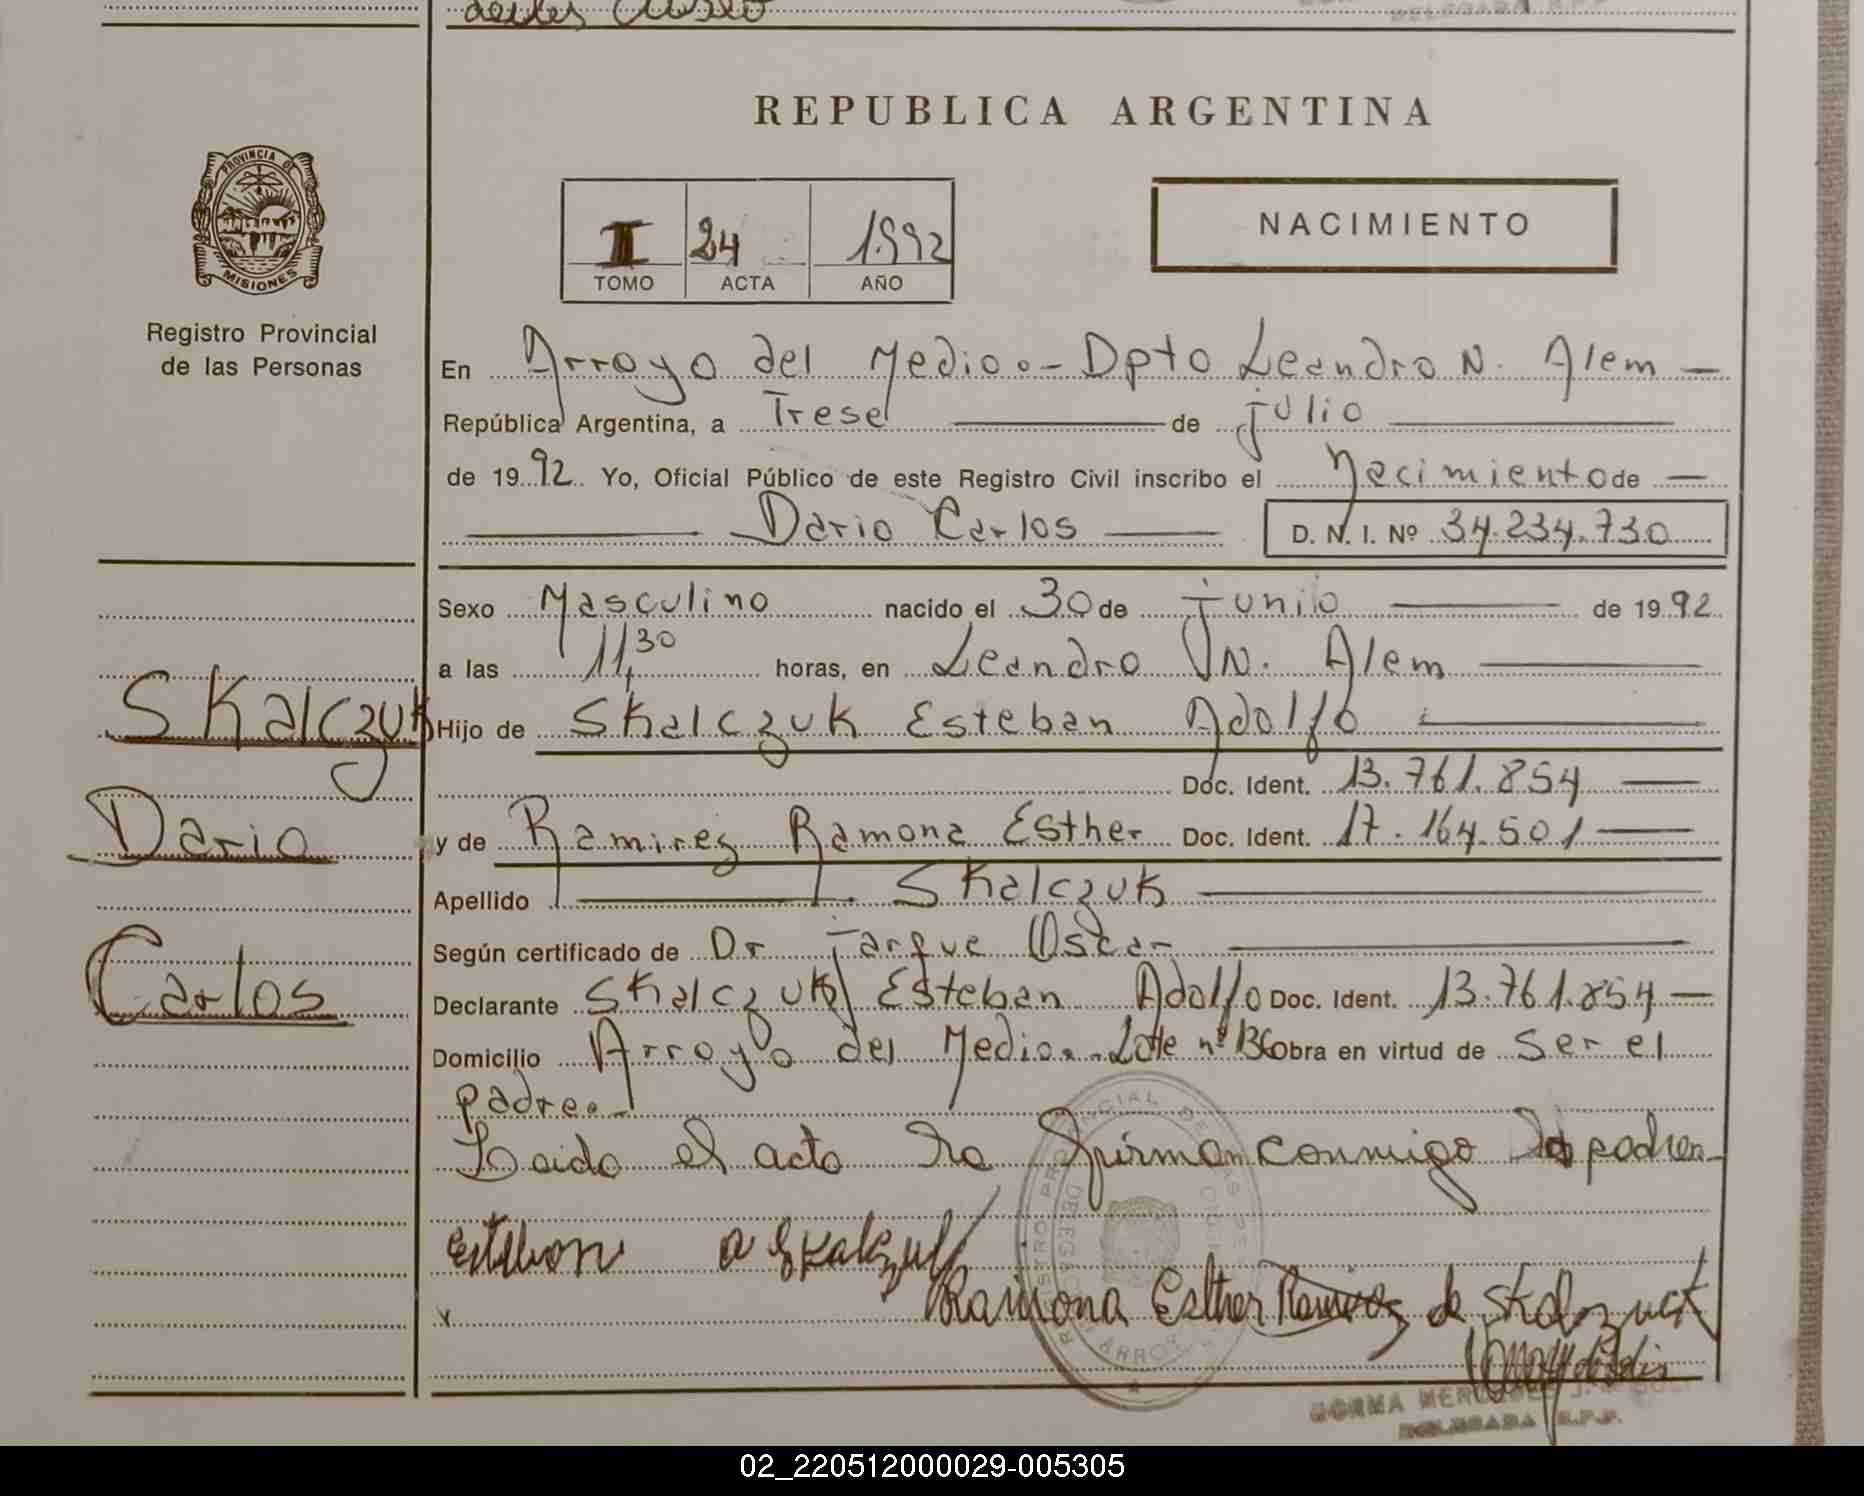 REPUBLICA ARGENTINA
PROVINCIA DE
MISIONES
Registro Provincial
de las Personas
I 24 1992
TOMO ACTA AÑO
NACIMIENTO
En Arroyo del Medio.- Dpto Leandro N. Alem —
República Argentina, a Trese — de julio —
de 1992 Yo, Oficial Público de este Registro Civil inscribo el Nacimiento de —
— Dario Carlos — D. N. I. Nº 34.234.730
Sexo Masculino nacido el 30 de junio — de 1992
a las 11,30 horas, en Leandro N. Alem —
Hijo de Skalczuk Esteban Adolfo —
Doc. Ident. 13.761.854 —
y de Ramirez Ramona Esther Doc. Ident. 17.164.501 —
Apellido — Skalczuk —
Según certificado de Dr Jarque Oscar —
Declarante Skalczuk Esteban Adolfo Doc. Ident. 13.761.854 —
Domicilio Arroyo del Medio.- Lote nº 136 obra en virtud de Ser el
padre.-
Leido el acta la firman conmigo los padres-
Esteban A Skalczuk
Ramona Esther Ramirez de Skalczuk
Skalczuk
Dario
Carlos
NORMA
DELEGADA R.P.P.
02_220512000029-005305